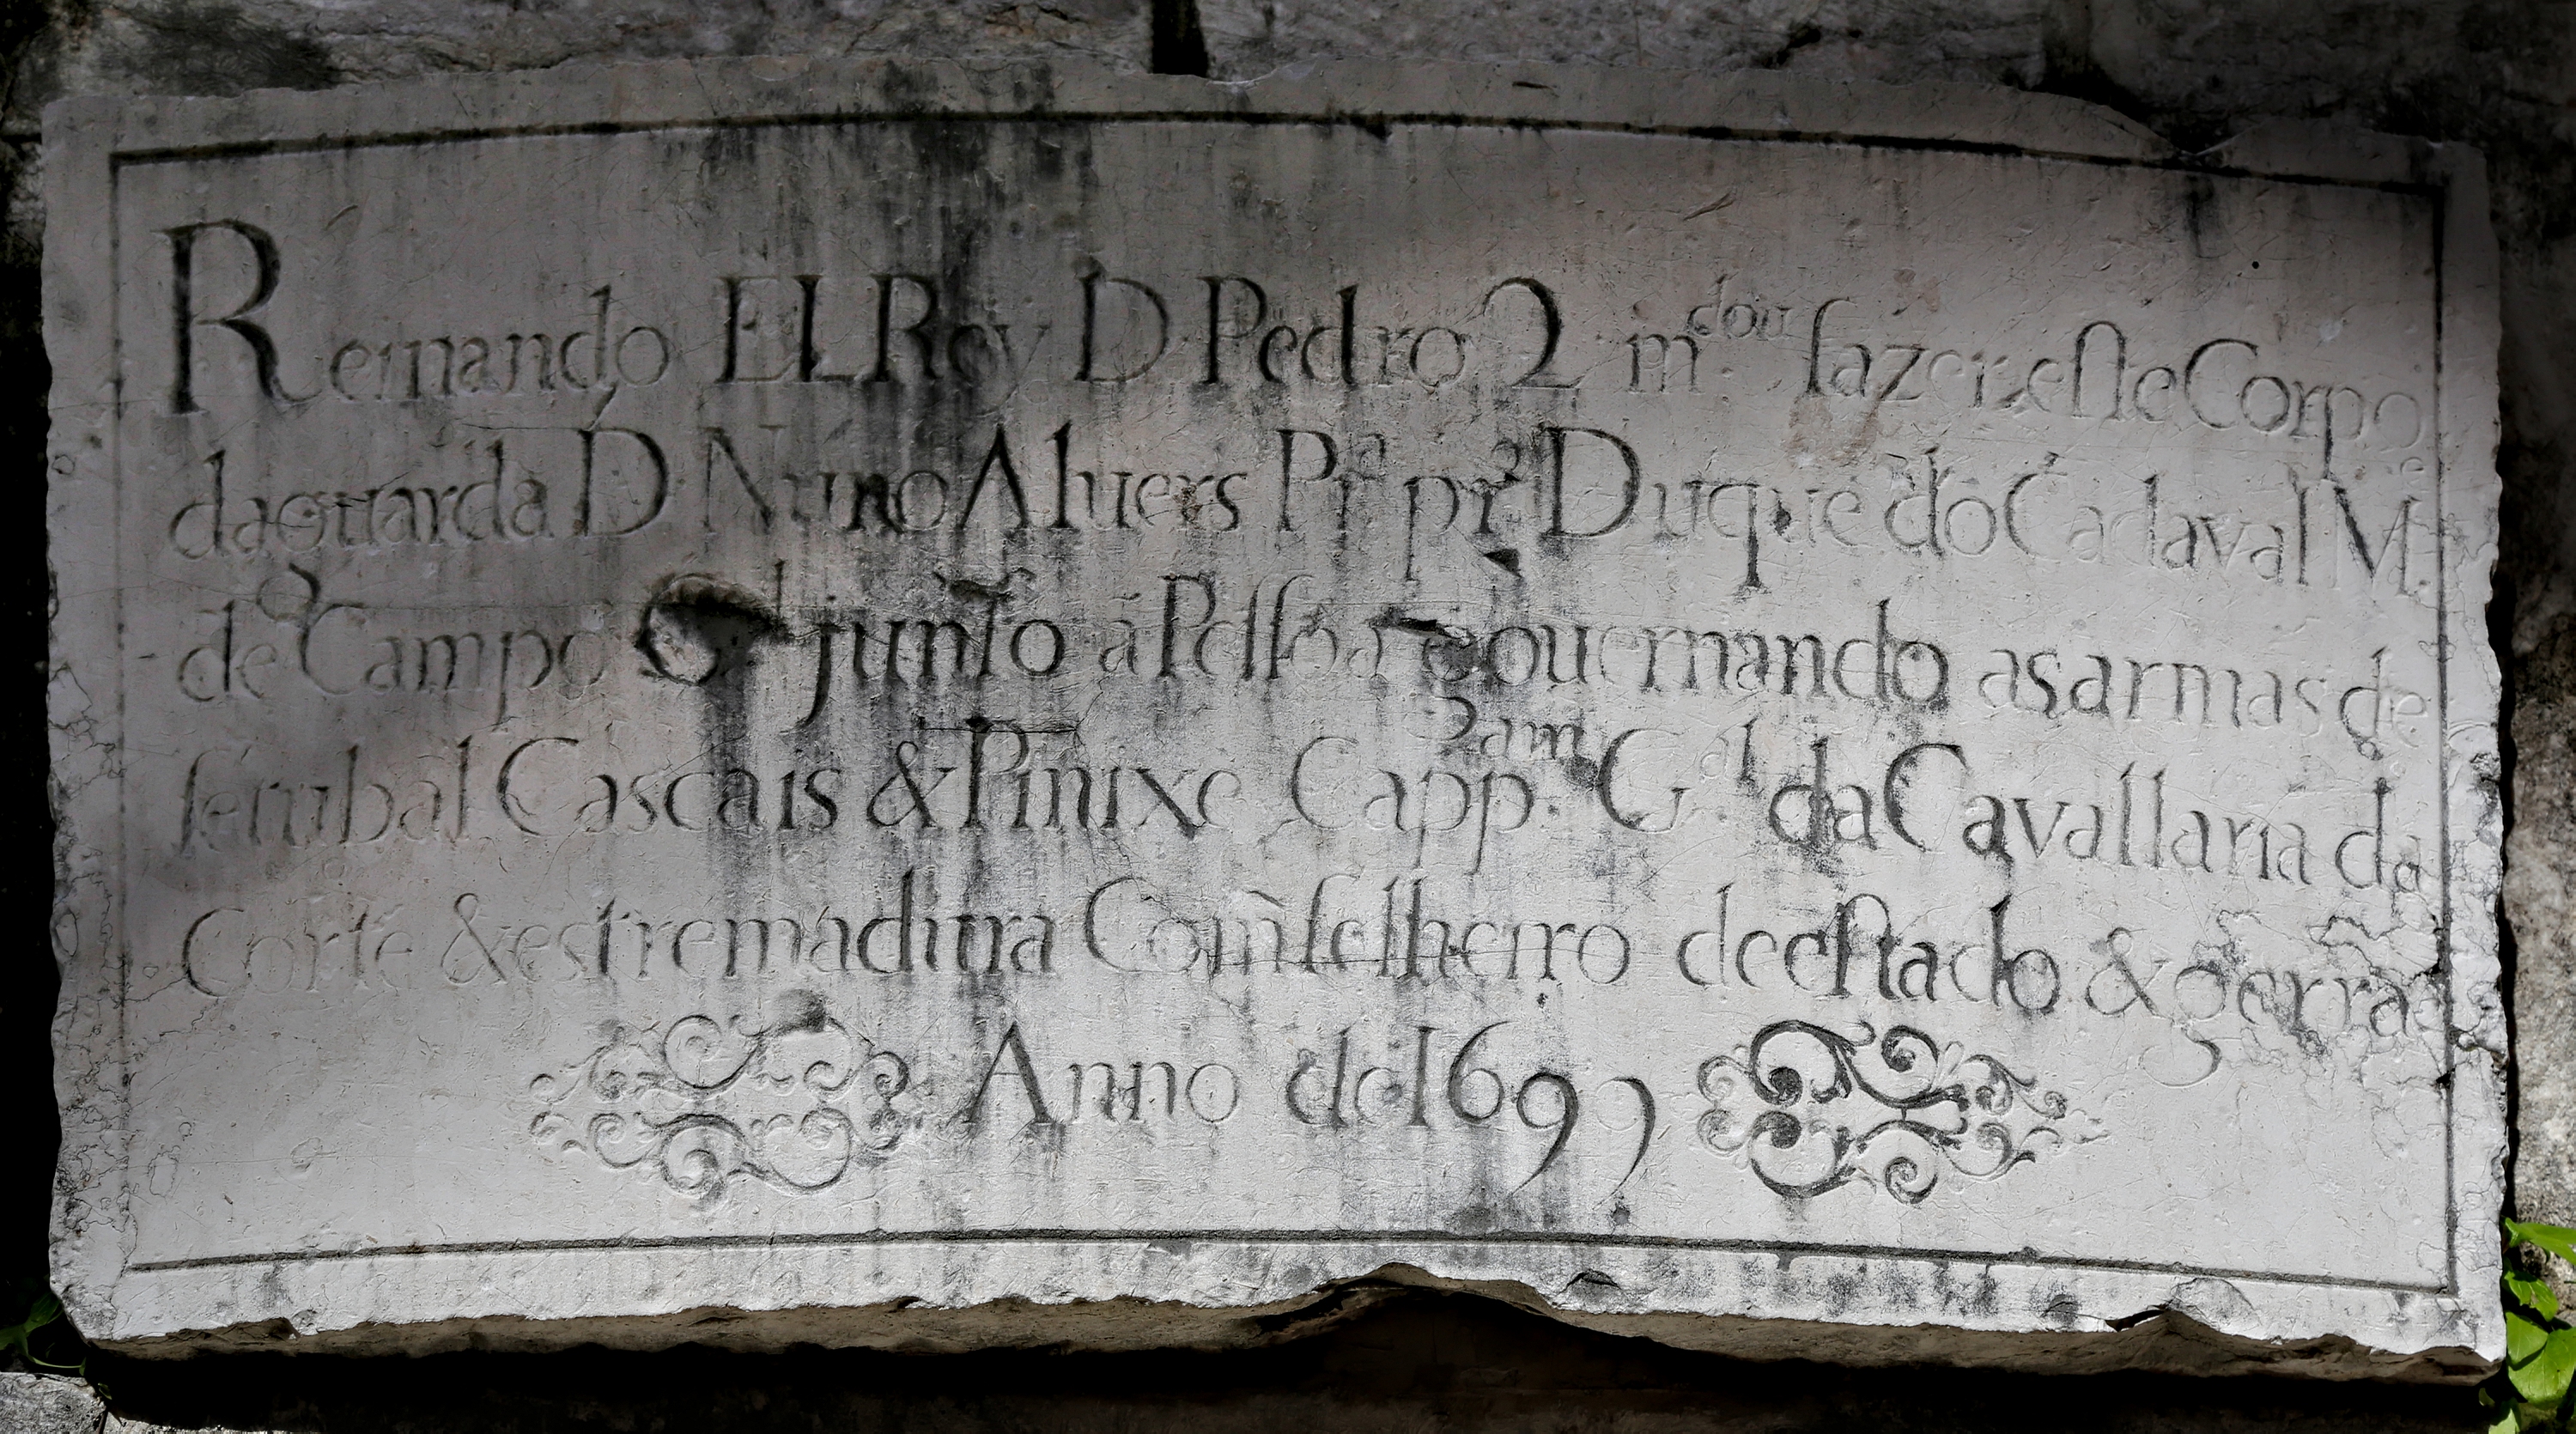 Reinando EL Rey D Pedro 2 mdou fazer este Corpo
daguarda D Nuno Aluers Pra pro Duque do Cadaval M.e
de Campo G. junto a Pessoa gouernando asarmas de
setubal Cascais & Pinixe Capp.am Gal da Cavallaria da
Corte & estremadura Comselheiro deestado & gerra
Anno de1699